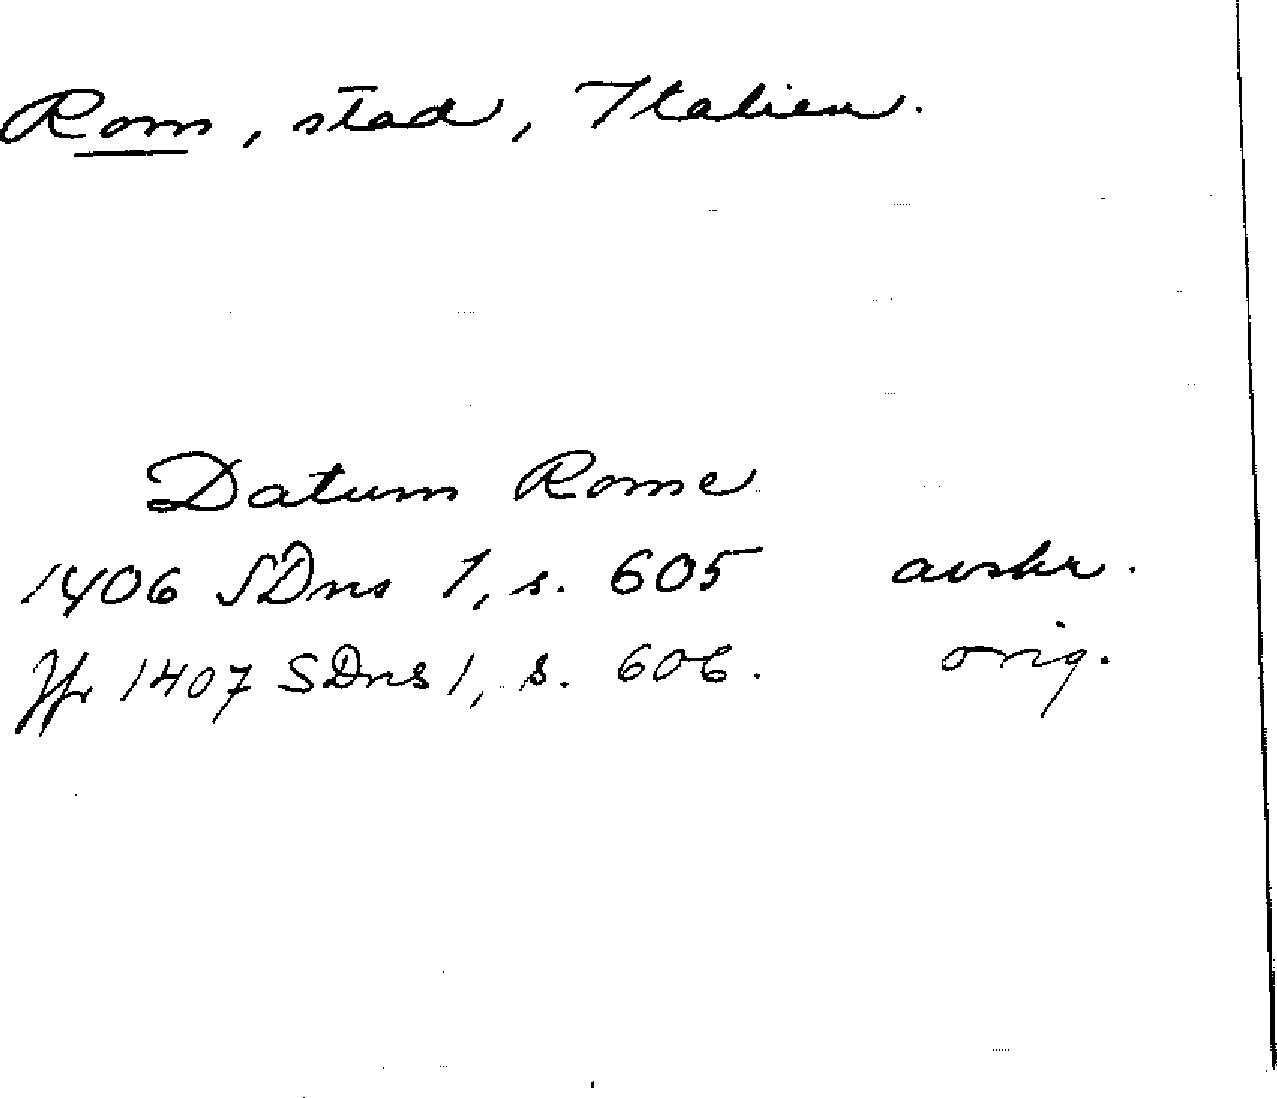 Rom, stad, Italien.
Datum Rome
1406 SDns 1, s. 605 avskr.
Jfr 1407 SDns 1, s. 606. orig.